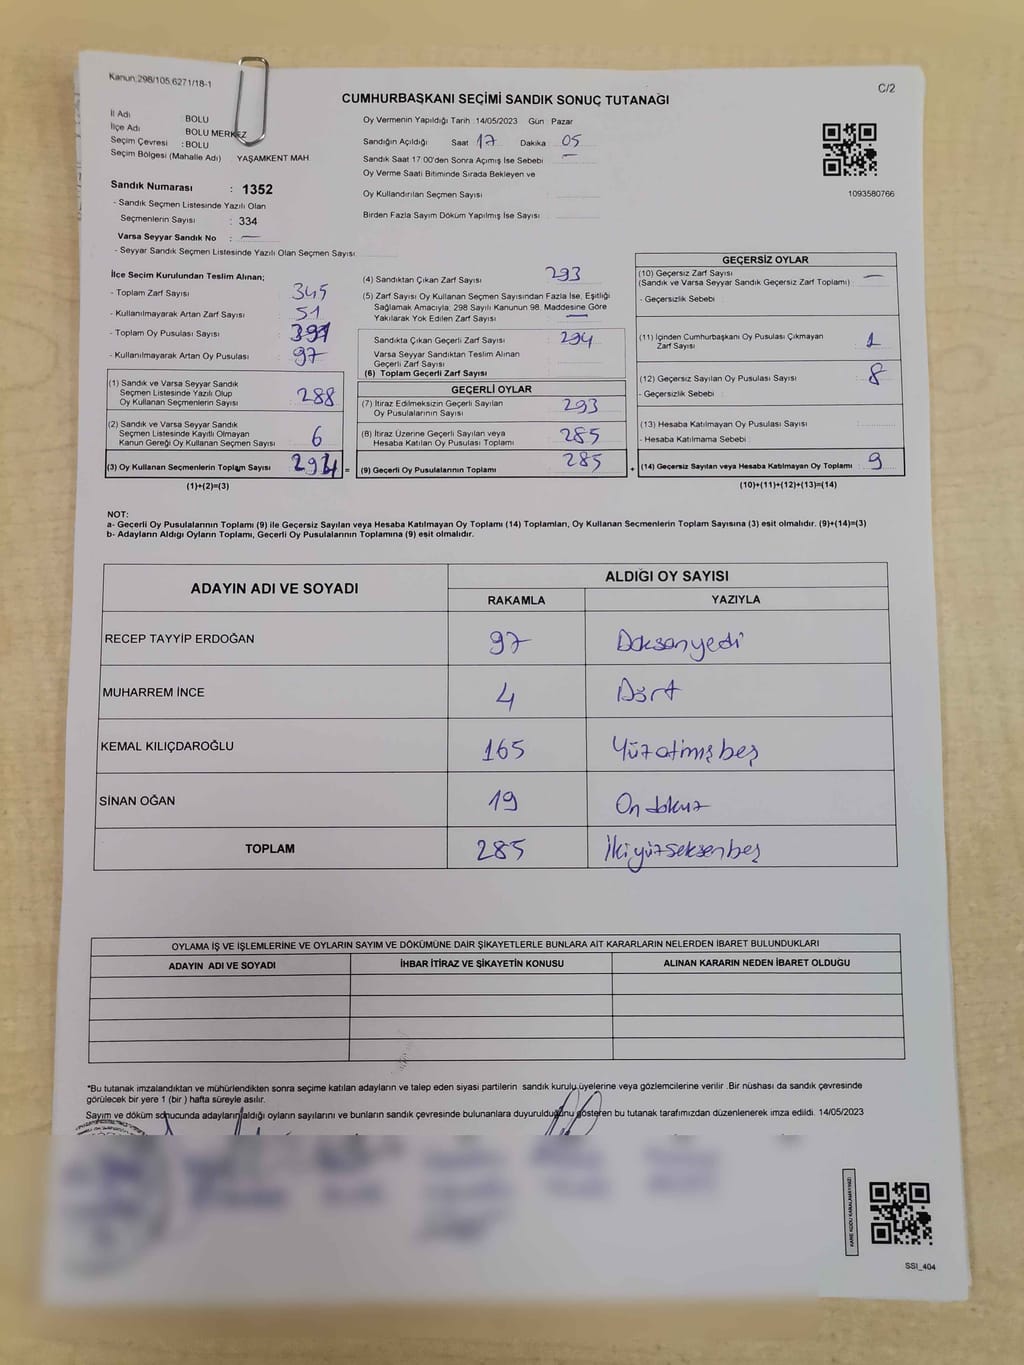 Kanun:298/105;6271/18-1
C/2
CUMHURBAŞKANI SEÇİMİ SANDIK SONUÇ TUTANAĞI
İl Adı BOLU
İlçe Adı BOLU MERKEZ
Seçim Çevresi : BOLU
Seçim Bölgesi (Mahalle Adı) YAŞAMKENT MAH
Sandık Numarası : 1352
- Sandık Seçmen Listesinde Yazılı Olan
Seçmenlerin Sayısı : 334
Varsa Seyyar Sandık No : —
- Seyyar Sandık Seçmen Listesinde Yazılı Olan Seçmen Sayısı:
Oy Vermenin Yapıldığı Tarih : 14/05/2023 Gün : Pazar
Sandığın Açıldığı Saat 17 Dakika 05
Sandık Saat 17:00'den Sonra Açımış İse Sebebi : —
Oy Verme Saati Bitiminde Sırada Bekleyen ve
Oy Kullandırılan Seçmen Sayısı :
Birden Fazla Sayım Döküm Yapılmış İse Sayısı :
1093580766
İlçe Seçim Kurulundan Teslim Alınan;
- Toplam Zarf Sayısı : 345
- Kullanılmayarak Artan Zarf Sayısı : 51
- Toplam Oy Pusulası Sayısı : 391
- Kullanılmayarak Artan Oy Pusulası : 97
(1) Sandık ve Varsa Seyyar Sandık
Seçmen Listesinde Yazılı Olup
Oy Kullanan Seçmenlerin Sayısı : 288
(2) Sandık ve Varsa Seyyar Sandık
Seçmen Listesinde Kayıtlı Olmayan
Kanun Gereği Oy Kullanan Seçmen Sayısı : 6
(3) Oy Kullanan Seçmenlerin Toplam Sayısı : 294 =
(1)+(2)=(3)
(4) Sandıktan Çıkan Zarf Sayısı : 293
(5) Zarf Sayısı Oy Kullanan Seçmen Sayısından Fazla İse, Eşitliği
Sağlamak Amacıyla; 298 Sayılı Kanunun 98. Maddesine Göre
Yakılarak Yok Edilen Zarf Sayısı : —
Sandıkta Çıkan Geçerli Zarf Sayısı : 294
Varsa Seyyar Sandıktan Teslim Alınan
Geçerli Zarf Sayısı :
(6) Toplam Geçerli Zarf Sayısı :
GEÇERLİ OYLAR
(7) İtiraz Edilmeksizin Geçerli Sayılan
Oy Pusulalarının Sayısı : 293
(8) İtiraz Üzerine Geçerli Sayılan veya
Hesaba Katılan Oy Pusulası Toplamı : 285
(9) Geçerli Oy Pusulalarının Toplamı : 285 +
GEÇERSİZ OYLAR
(10) Geçersiz Zarf Sayısı : —
(Sandık ve Varsa Seyyar Sandık Geçersiz Zarf Toplamı)
- Geçersizlik Sebebi :
(11) İçinden Cumhurbaşkanı Oy Pusulası Çıkmayan
Zarf Sayısı : 1
(12) Geçersiz Sayılan Oy Pusulası Sayısı : 8
- Geçersizlik Sebebi :
(13) Hesaba Katılmayan Oy Pusulası Sayısı :
- Hesaba Katılmama Sebebi :
(14) Geçersiz Sayılan veya Hesaba Katılmayan Oy Toplamı : 9
(10)+(11)+(12)+(13)=(14)
NOT:
a- Geçerli Oy Pusulalarının Toplamı (9) ile Geçersiz Sayılan veya Hesaba Katılmayan Oy Toplamı (14) Toplamları, Oy Kullanan Seçmenlerin Toplam Sayısına (3) eşit olmalıdır. (9)+(14)=(3)
b- Adayların Aldığı Oyların Toplamı, Geçerli Oy Pusulalarının Toplamına (9) eşit olmalıdır.
ADAYIN ADI VE SOYADI
ALDIĞI OY SAYISI
RAKAMLA YAZIYLA
RECEP TAYYİP ERDOĞAN 97 Doksanyedi
MUHARREM İNCE 4 Dört
KEMAL KILIÇDAROĞLU 165 Yüzatmışbeş
SİNAN OĞAN 19 On dokuz
TOPLAM 285 İkiyüzseksenbeş
OYLAMA İŞ VE İŞLEMLERİNE VE OYLARIN SAYIM VE DÖKÜMÜNE DAİR ŞİKAYETLERLE BUNLARA AİT KARARLARIN NELERDEN İBARET BULUNDUKLARI
ADAYIN ADI VE SOYADI İHBAR İTİRAZ VE ŞİKAYETİN KONUSU ALINAN KARARIN NEDEN İBARET OLDUĞU
*Bu tutanak imzalandıktan ve mühürlendikten sonra seçime katılan adayların ve talep eden siyasi partilerin sandık kurulu üyelerine veya gözlemcilerine verilir .Bir nüshası da sandık çevresinde
görülecek bir yere 1 (bir ) hafta süreyle asılır.
Sayım ve döküm sonucunda adayların aldığı oyların sayılarını ve bunların sandık çevresinde bulunanlara duyurulduğunu gösteren bu tutanak tarafımızdan düzenlenerek imza edildi. 14/05/2023
KARE KODU KARALAMAYINIZ!
SSI_404